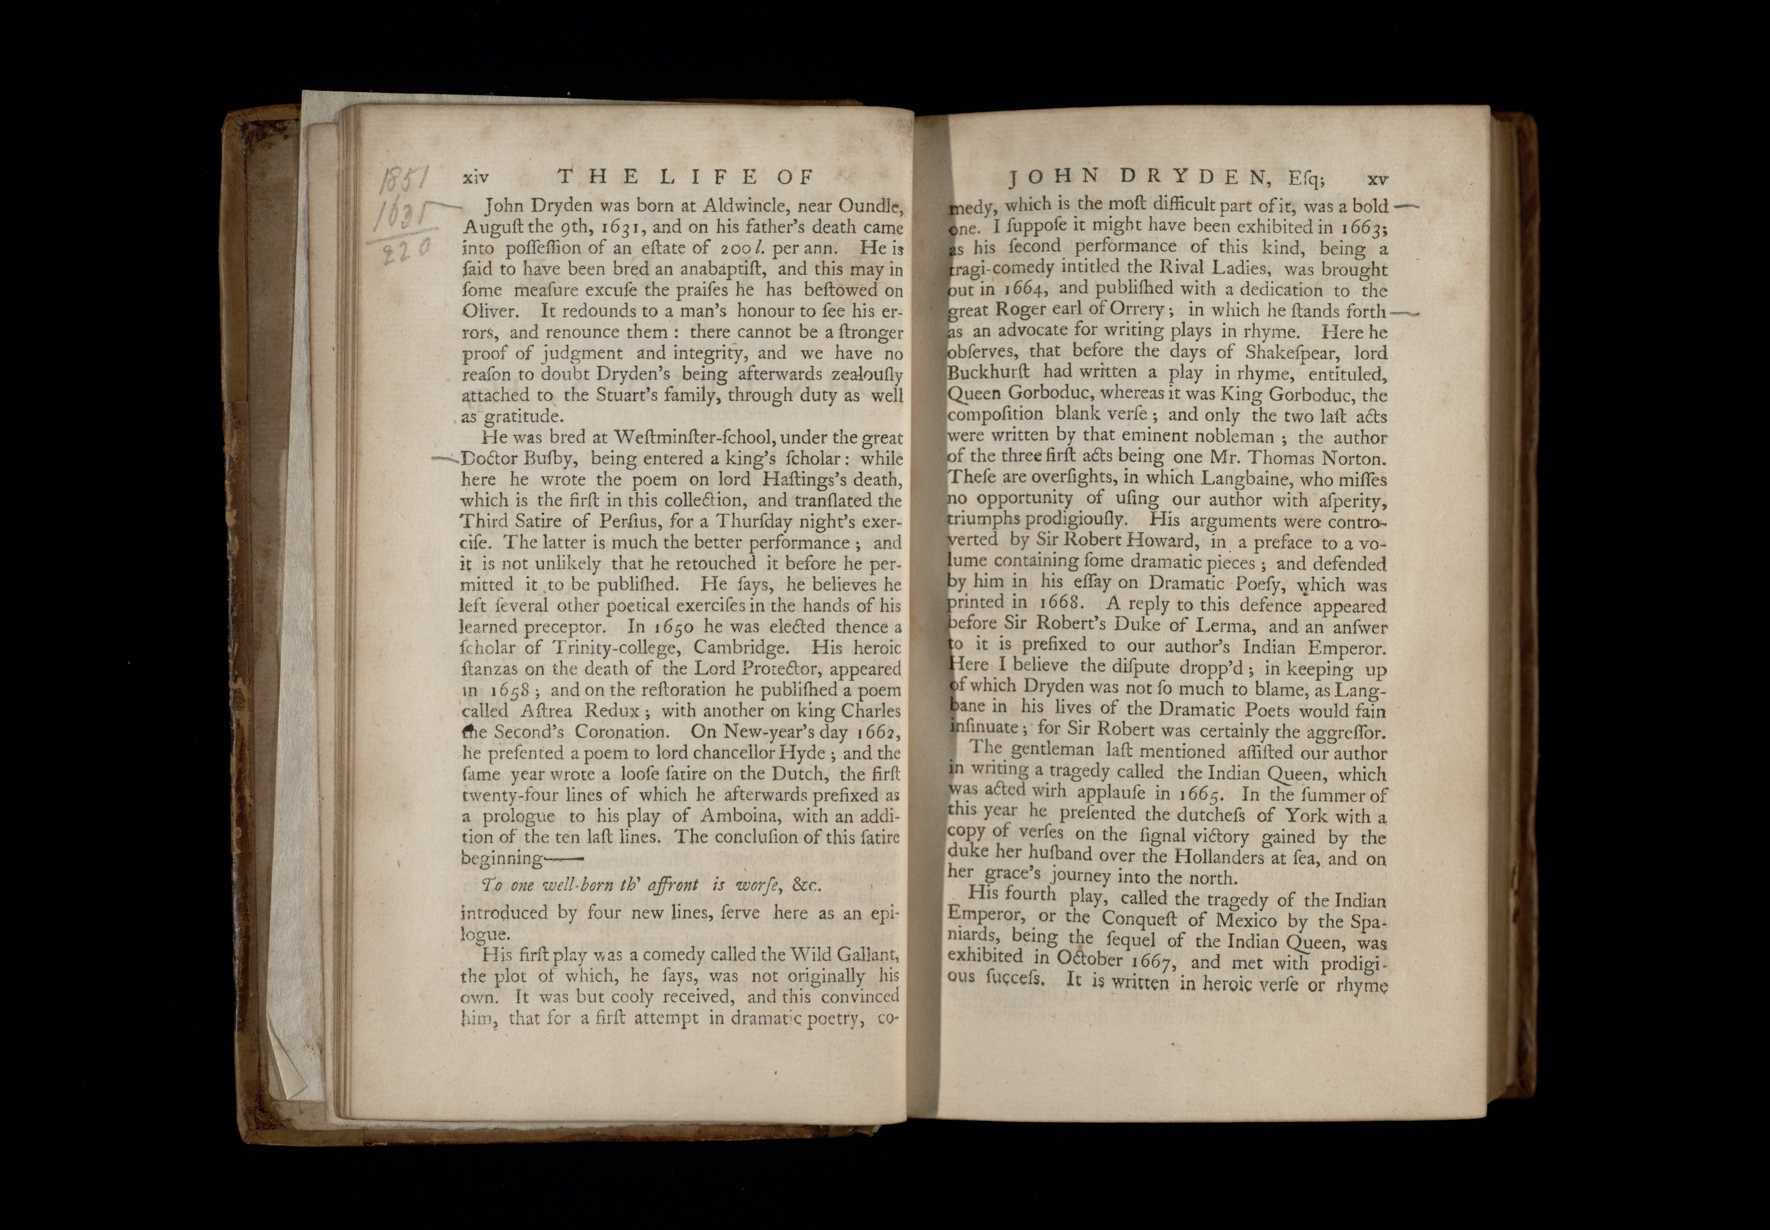 1851
1631
220
xiv THE LIFE OF
John Dryden was born at Aldwincle, near Oundle,
Auguſt the 9th, 1631, and on his father's death came
into poſſeſſion of an eſtate of 200 l. per ann. He is
ſaid to have been bred an anabaptiſt, and this may in
ſome meaſure excuſe the praiſes he has beſtowed on
Oliver. It redounds to a man's honour to ſee his er-
rors, and renounce them : there cannot be a ſtronger
proof of judgment and integrity, and we have no
reaſon to doubt Dryden's being afterwards zealouſly
attached to the Stuart's family, through duty as well
as gratitude.
He was bred at Weſtminſter-ſchool, under the great
Doctor Buſby, being entered a king's ſcholar : while
here he wrote the poem on lord Haſtings's death,
which is the firſt in this collection, and tranſlated the
Third Satire of Perſius, for a Thurſday night's exer-
ciſe. The latter is much the better performance ; and
it is not unlikely that he retouched it before he per-
mitted it to be publiſhed. He ſays, he believes he
left ſeveral other poetical exerciſes in the hands of his
learned preceptor. In 1650 he was elected thence a
ſcholar of Trinity-college, Cambridge. His heroic
ſtanzas on the death of the Lord Protector, appeared
in 1658 ; and on the reſtoration he publiſhed a poem
called Aſtrea Redux ; with another on king Charles
the Second's Coronation. On New-year's day 1662,
he preſented a poem to lord chancellor Hyde ; and the
ſame year wrote a looſe ſatire on the Dutch, the firſt
twenty-four lines of which he afterwards prefixed as
a prologue to his play of Amboina, with an addi-
tion of the ten laſt lines. The concluſion of this ſatire
beginning——
To one well-born th' affront is worſe, &c.
introduced by four new lines, ſerve here as an epi-
logue.
His firſt play was a comedy called the Wild Gallant,
the plot of which, he ſays, was not originally his
own. It was but cooly received, and this convinced
him, that for a firſt attempt in dramatic poetry, co-
JOHN DRYDEN, Eſq; xv
medy, which is the moſt difficult part of it, was a bold
one. I ſuppoſe it might have been exhibited in 1663;
as his ſecond performance of this kind, being a
tragi-comedy intitled the Rival Ladies, was brought
out in 1664, and publiſhed with a dedication to the
great Roger earl of Orrery ; in which he ſtands forth
as an advocate for writing plays in rhyme. Here he
obſerves, that before the days of Shakeſpear, lord
Buckhurſt had written a play in rhyme, entituled,
Queen Gorboduc, whereas it was King Gorboduc, the
compoſition blank verſe ; and only the two laſt acts
were written by that eminent nobleman ; the author
of the three firſt acts being one Mr. Thomas Norton.
Theſe are overſights, in which Langbaine, who miſſes
no opportunity of uſing our author with aſperity,
triumphs prodigiouſly. His arguments were contro-
verted by Sir Robert Howard, in a preface to a vo-
lume containing ſome dramatic pieces ; and defended
by him in his eſſay on Dramatic Poeſy, which was
printed in 1668. A reply to this defence appeared
before Sir Robert's Duke of Lerma, and an anſwer
to it is prefixed to our author's Indian Emperor.
Here I believe the diſpute dropp'd ; in keeping up
of which Dryden was not ſo much to blame, as Lang-
bane in his lives of the Dramatic Poets would fain
inſinuate ; for Sir Robert was certainly the aggreſſor.
The gentleman laſt mentioned aſſiſted our author
in writing a tragedy called the Indian Queen, which
was acted wirh applauſe in 1665. In the ſummer of
this year he preſented the dutcheſs of York with a
copy of verſes on the ſignal victory gained by the
duke her huſband over the Hollanders at ſea, and on
her grace's journey into the north.
His fourth play, called the tragedy of the Indian
Emperor, or the Conqueſt of Mexico by the Spa-
niards, being the ſequel of the Indian Queen, was
exhibited in October 1667, and met with prodigi-
ous ſucceſs. It is written in heroic verſe or rhyme